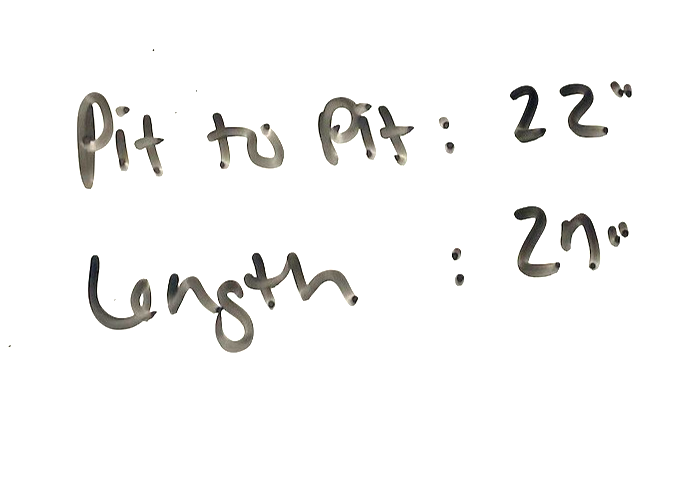 Pit to Pit: 22"
Length : 27"